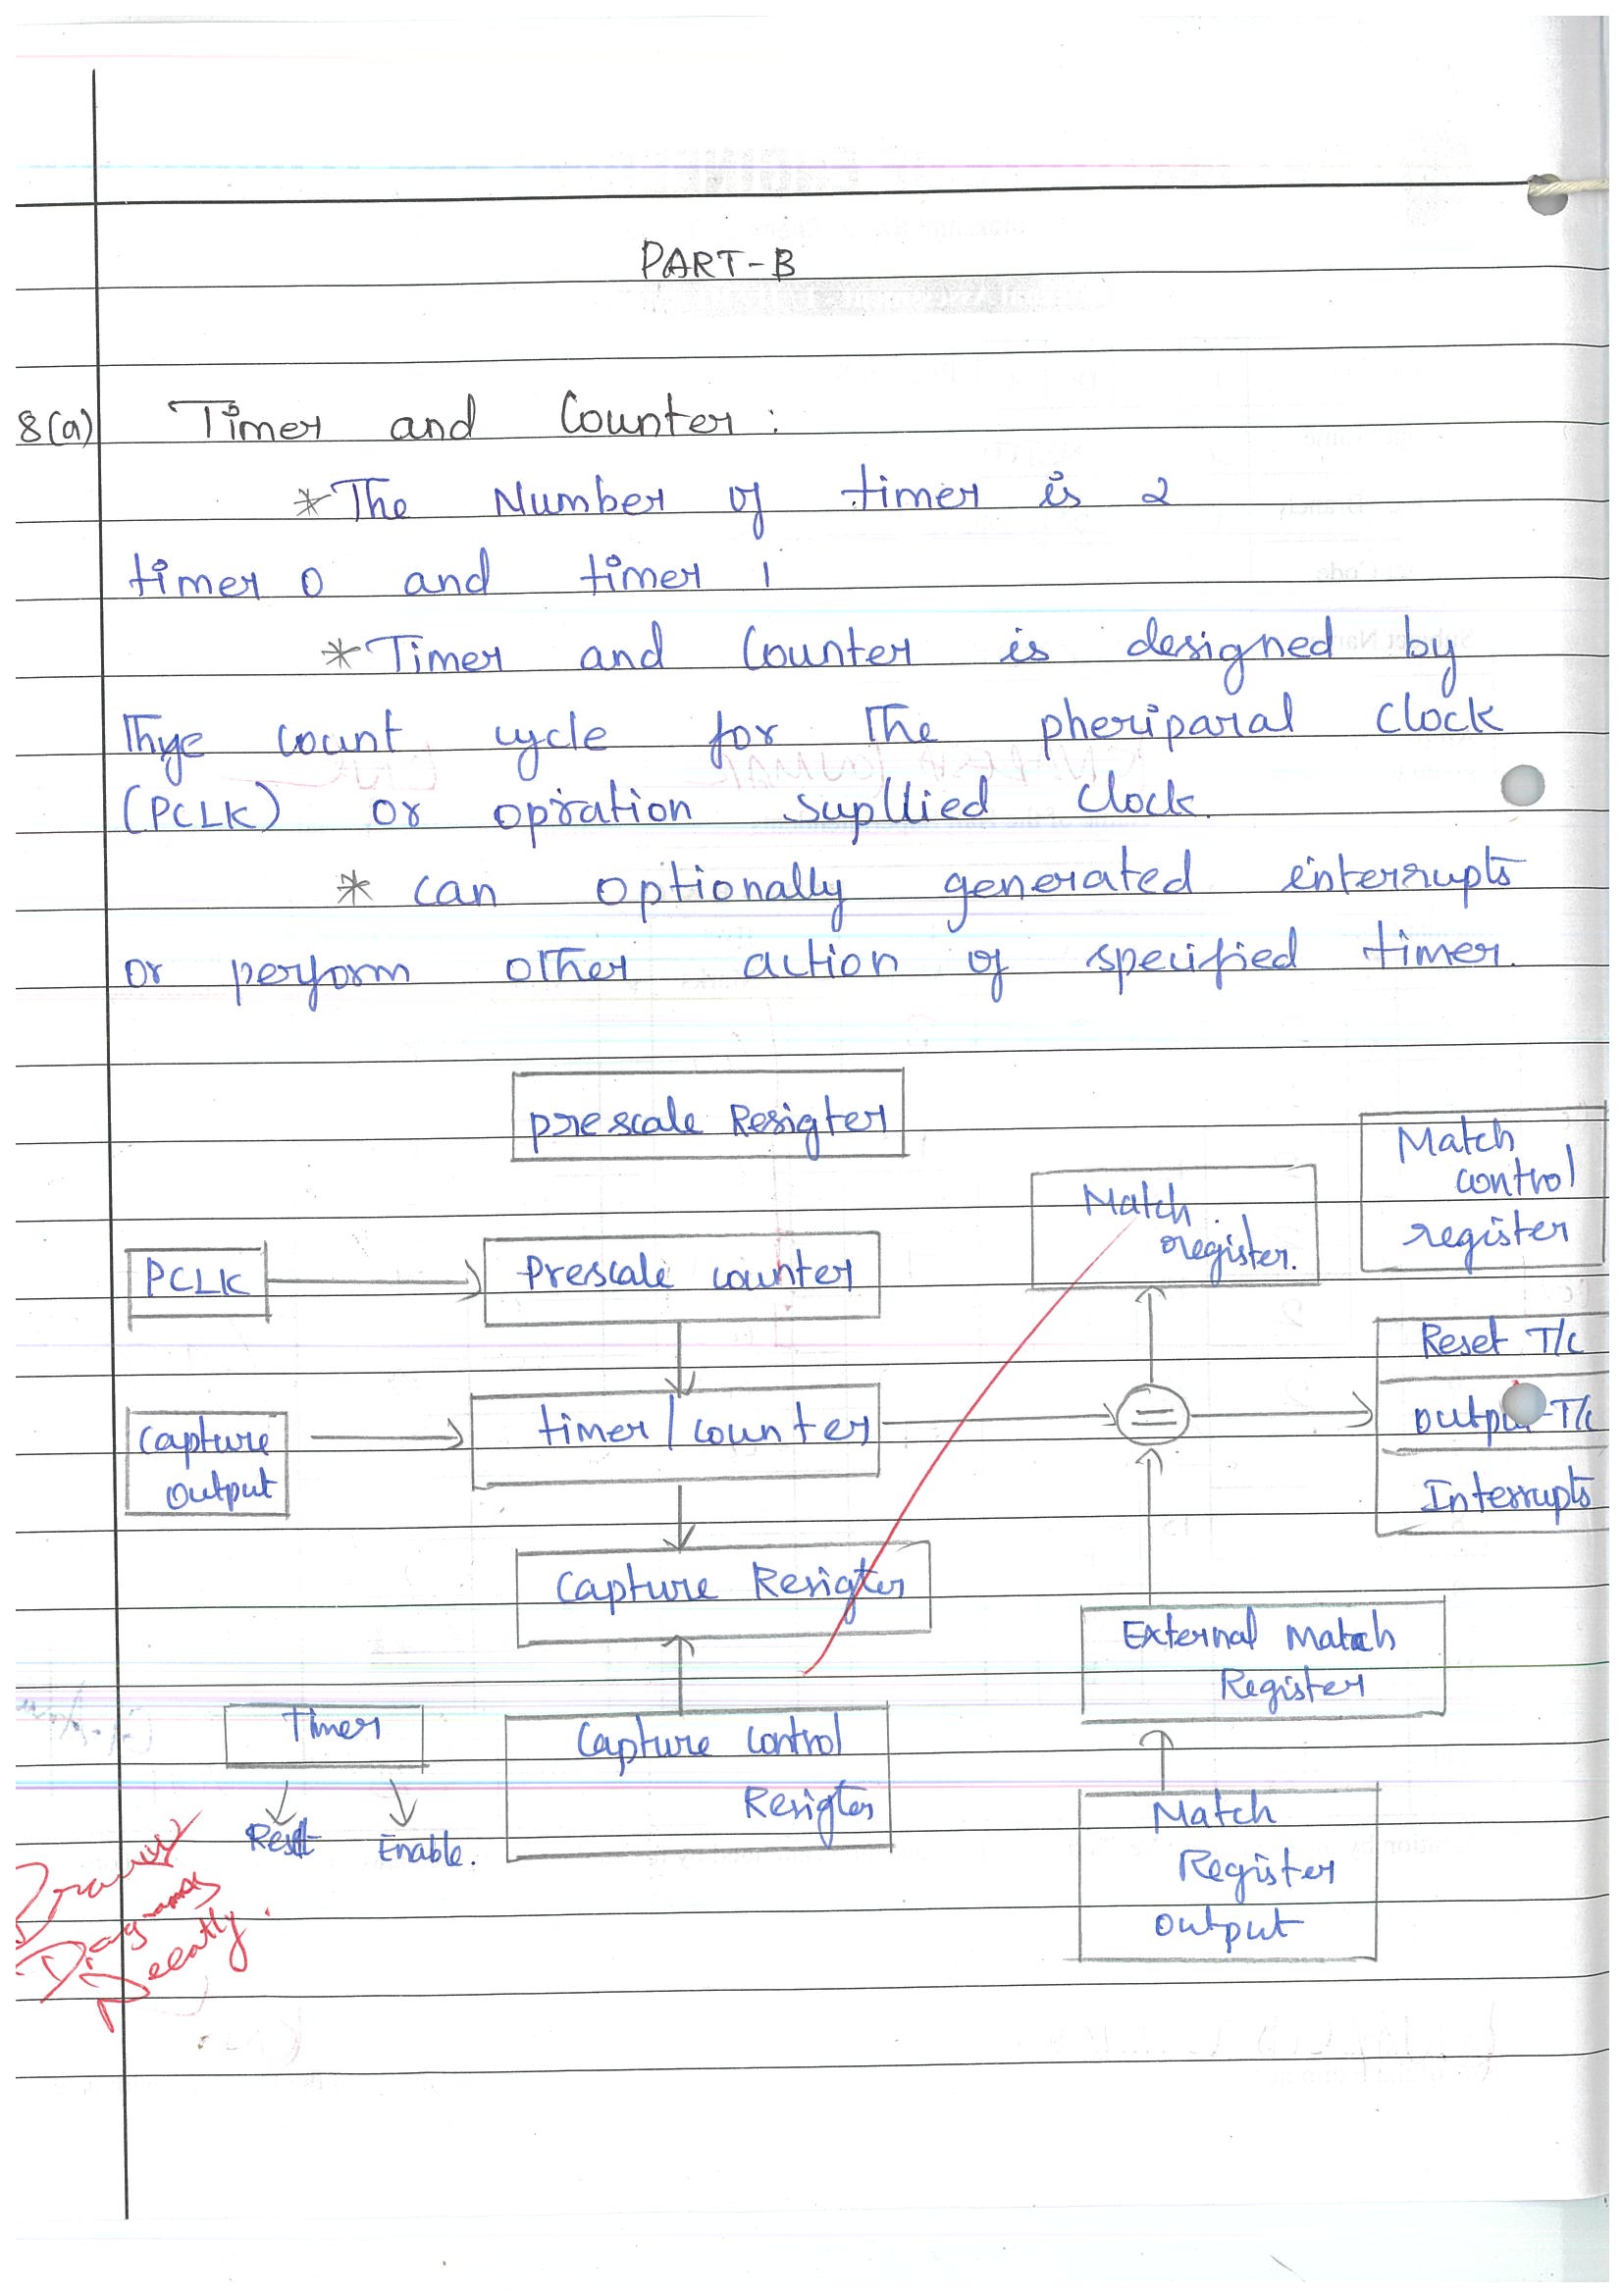 PART-B
8(a) Timer and Counter:
*The Number of timer is 2
timer 0 and timer 1
*Timer and Counter is designed by
Thye count cycle for The pheriparal clock
(PCLK) or opiration supllied clock.
* can optionally generated interrupts
or perform other action of specified timer.
prescale Resigter
Match
control
register
Match
register.
PCLK
Prescale counter
Reset T/C
Capture
output
timer/counter
=
output T/C
Interrupts
Capture Resigter
External Match
Register
Timer
Capture Control
Resigter
Reset Enable.
Match
Register
output
Draw
Diagrams
Neatly.